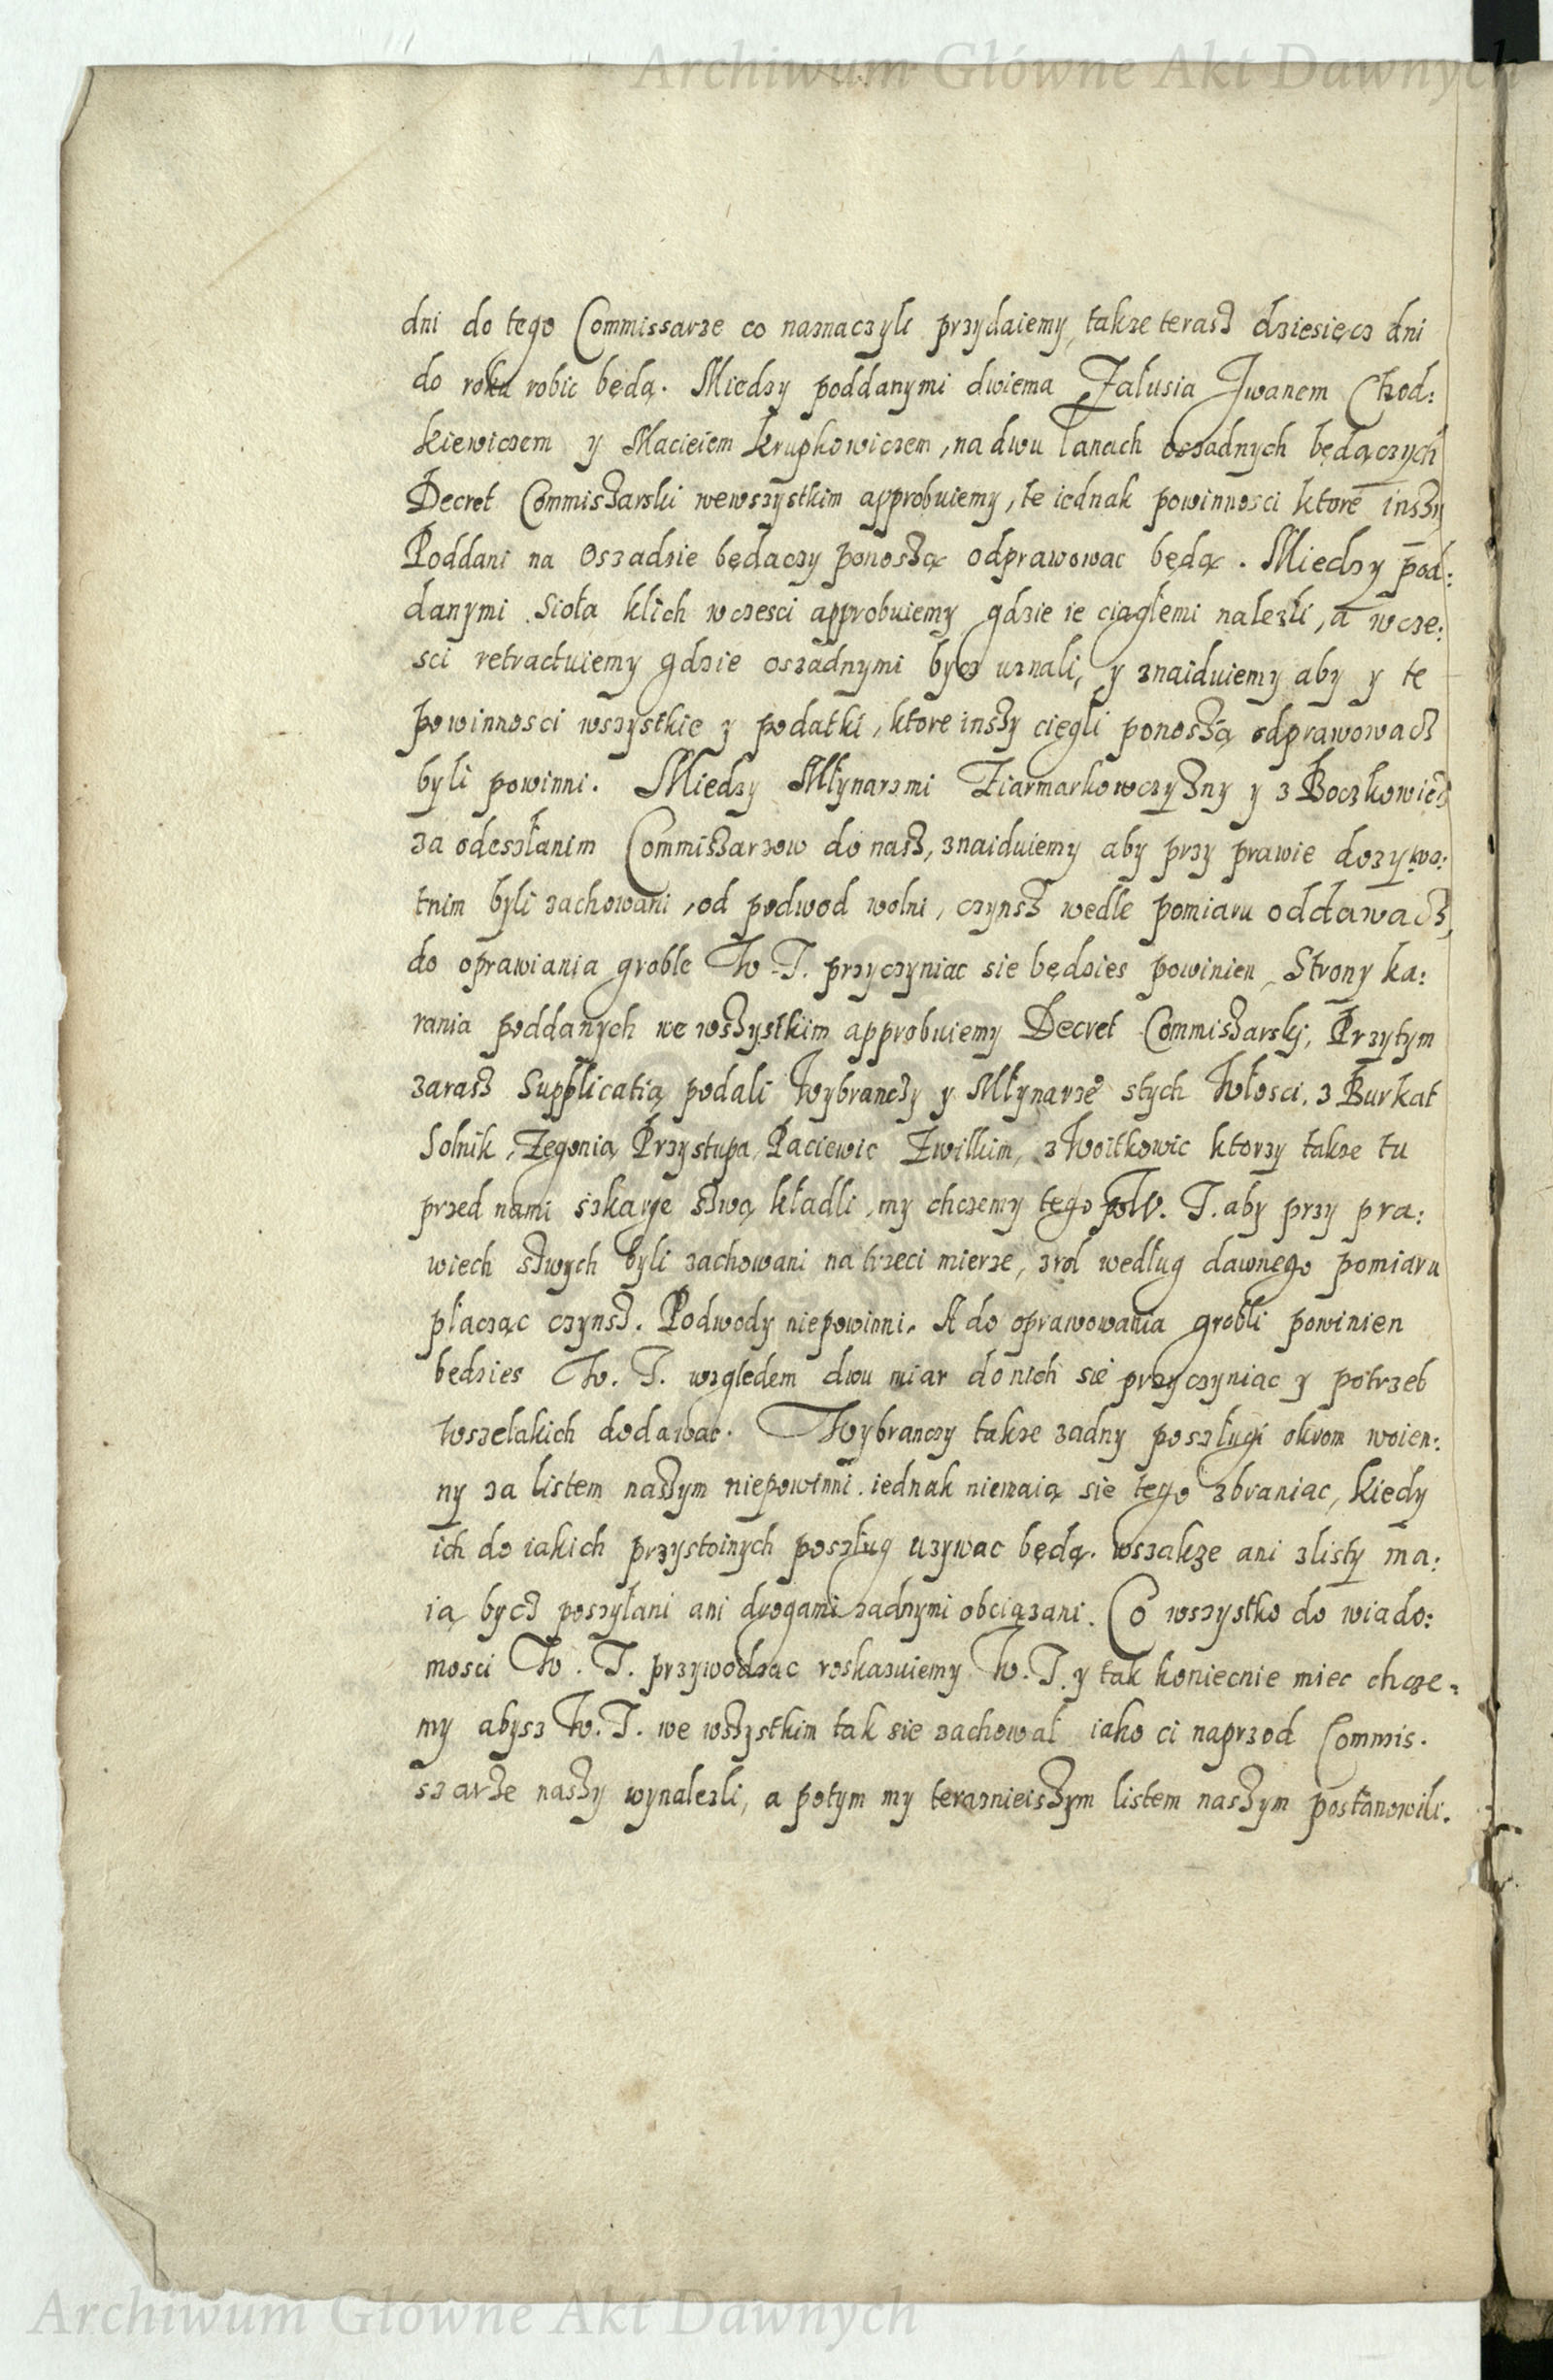 Archiwum Główne Akt Dawnych
dni do tego Commissarze co naznaczyli przydaiemy, takze terasz dziesięcz dni
do roku robic będą. Miedzy poddanymi dwiema Załusia Iwanem Chod:
kiewiczem y Macieiem Krupkowiczem, na dwu łanach oszadnych będączych
Decret Commiszarski wewszystkim approbuiemy, te iednak powinnosci ktore inszy
Poddani na Oszadzie będaczy ponoszą odprawowac będą. Miedzy pod:
danymi Sioła Klich wczesci approbuiemy gdzie ie ciągłemi nalezli, a wcze:
sci retractuiemy gdzie oszadnymi bycz uznali, y znaiduiemy aby y te
powinnosci wszystkie y podatki, ktore inszy cięgli ponoszą odprawowacz
byli powinni. Miedzy Młynarzmi Ziarmarkowczyzny y z Boczkowicz
za odesłanim Commiszarzow do nasz, znaiduiemy aby przy prawie dozywo:
tnim byli zachowani, od podwod wolni, czynsz wedle pomiaru oddawacz,
do oprawiania groble W. T. przyczyniac sie będzies powinien, Strony ka:
rania poddanych we wszystkim approbuiemy Decret Commiszarski, Przytym
zarasz Supplicatią podali Wybranczy y Młynarze stych Włosci, z Burkat
Solnik, Przystupa, Paciewic Zwilkim, z Woitkowic ktorzy takze tu
przed nami szkarge szwą kładli, my chczemy tego po W. T. aby przy pra:
wiech szwych byli zachowani na trzeci mierze, zrol według dawnego pomiaru
płacząc czynsz. Podwody niepowinni. A do oprawowania grobli powinien
będzies W. T. względem dwu miar do nich sie przyczyniac y potrzeb
Wszelakich dodawac. Wybranczy takze zadny poszługi okrom woien:
ny za listem naszym niepowinni. iednak niemaią sie tego zbraniac, kiedy
ich do iakich przystoinych poszług uzywac będą. wszakze ani zlisty ma:
ią bycz poszyłani ani drogami zadnymi obciązani. Co wszystko do wiado:
mosci W. T. przywodzac roskazuiemy W. T. y tak koniecnie miec chcze:
my abysz W. T. we wszystkim tak sie zachował iako ci naprzod Commis.
szarze naszy wynalezli, a potym my teraznieiszym listem naszym postanowili.
Archiwum Główne Akt Dawnych